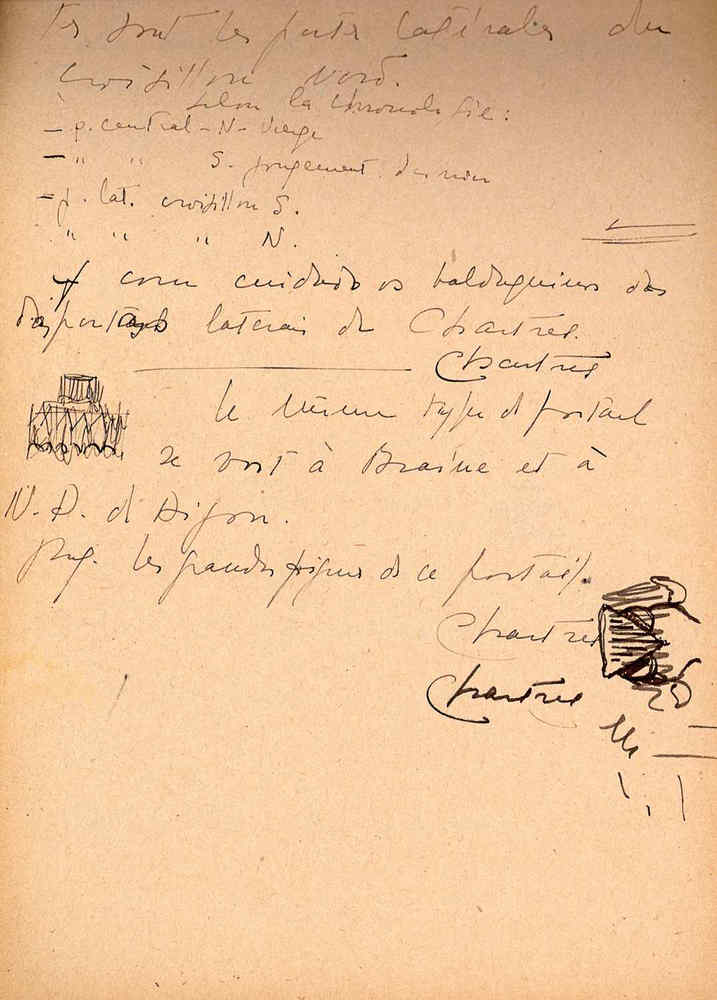 sont les portes latérales du
croisillon Nord.
selon la chronologie:
– p. central – N – Vierge
– " " S. jungement dernier
– p. lat. croisillon S.
" " " N.
com cuidado os baldaquinos das
portas laterais de Chartres.
Chartres
le même type d portail
se voit à Braine et à
N. D. d Dijon.
les grandes figures de ce portail.
Chartres
Chartres